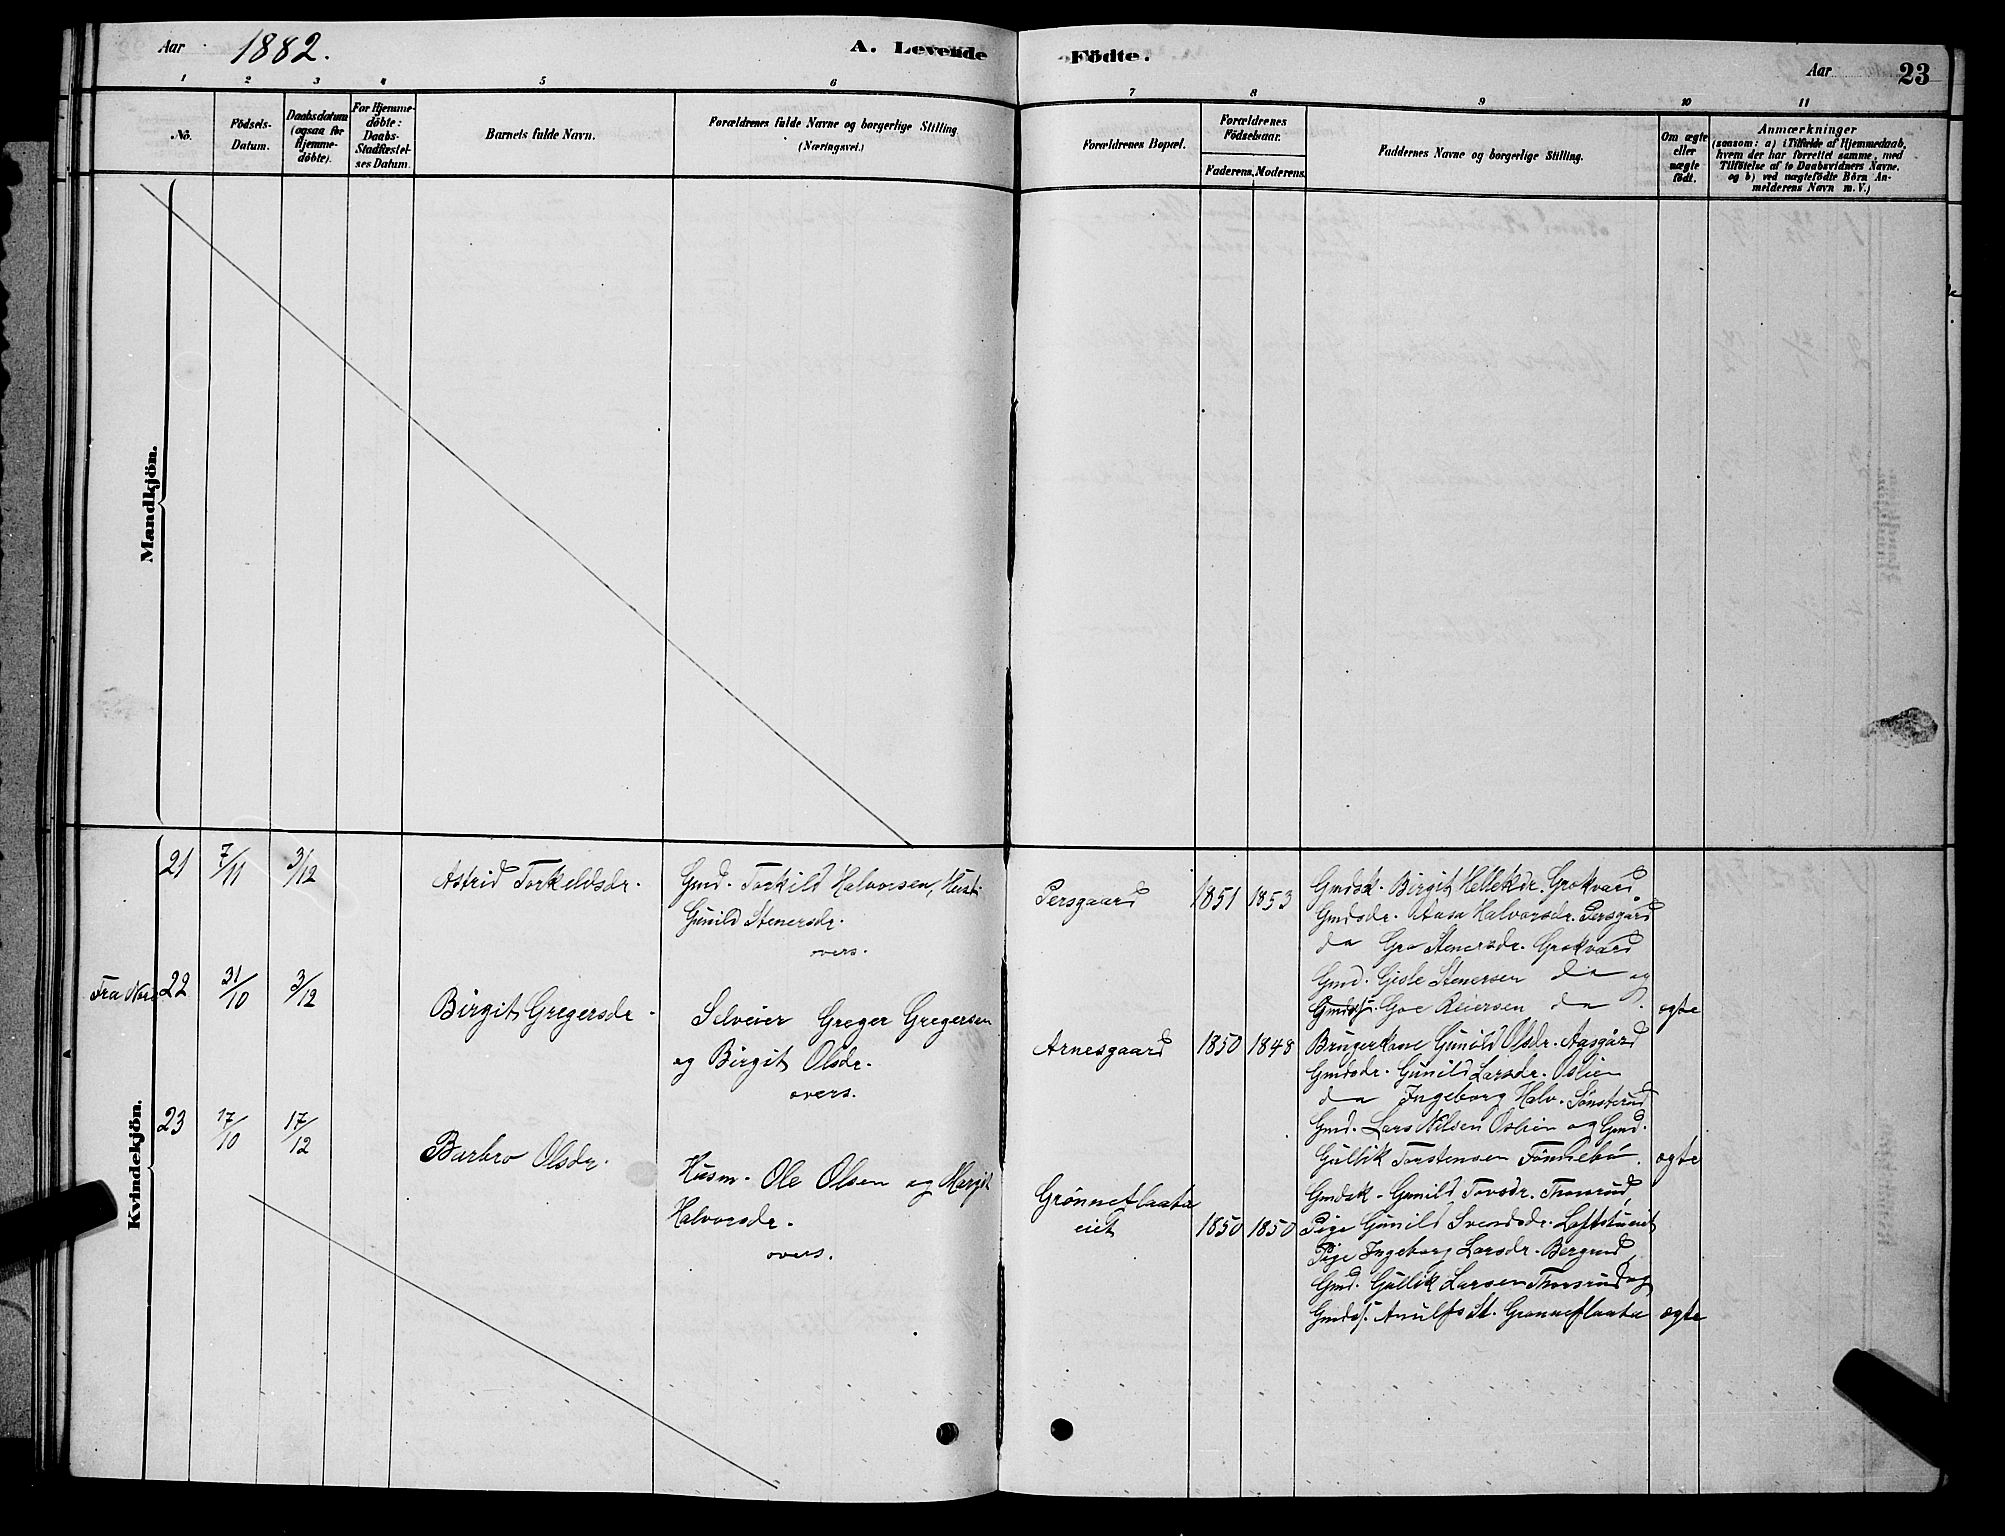 Aar 1882. A. Levende Födte. Aar 23
1 2 3 4 5 6 7 8 9 10 11
No.
Födsels-
Datum.
Daabsdatum
(ogsaa for
Hjemme-
döbte).
For Hjemme-
döbte:
Daabs-
Stadfæstel-
ses Datum.
Barnets fulde Navn.
Forældrenes fulde Navne og borgerlige Stilling
(Næringsvei.)
Forældrenes Bopæl.
Forældrenes
Födselsaar.
Faderens. Moderens.
Faddernes Navne og borgerlige Stilling.
Om ægte
eller
uægte
født.
Anmærkninger
(saasom: a) i Tilfælde af Hjemmedaab,
hvem der har forrettet samme, med
Tilföielse af to Daabsvidners Navne,
og b) ved uægtefödte Börn An-
melderens Navn m. V.)
Mandkjön.
Kvindekjön.
21 7/11 3/12
Astrid Torkeldsdr.
Gmd. Torkild Halvorsen, Hust.
Gunild Stenersdr.
overs.
Persgaard 1851 1853
Gmdsk. Birgit Hellekdr. Grokvard
Gmdsdr. Aasa Halvorsdr. Persgård
do Gro Stenersdr. Grokvard
Gmd. Gisle Stenersen do og
Gmdss. Goe Reiersen do. ægte
Fra Nore 22 31/10 3/12
Birgit Gregersdr
Selveier Greger Gregersen
og Birgit Olsdr.
overs.
Arnesgaard 1850 1848
Brugerkone Gunild Olsdr. Aasgård
Gmdsdr. Gunild Larsdr. Oslien
do Ingeborg Halv. Sønsterud
Gmd. Lars Nilsen Oslien og Gmd.
Gullik Torstensen Fønnebø. ægte
23 17/10 17/12
Barbro Olsdr.
Husm. Ole Olsen og Margit
Halvorsdr.
overs.
Grønneflaata
eiet 1850 1850
Gmdsk. Gunild Tovsdr. Thorsrud,
Pige Gunild Svendsdr. Loftstueiet
Pige Ingeborg Larsdr. Bergerud,
Gmd. Gullik Larsen Thorsrud og
Gmdss. Anulf St. Grønneflaata ægte